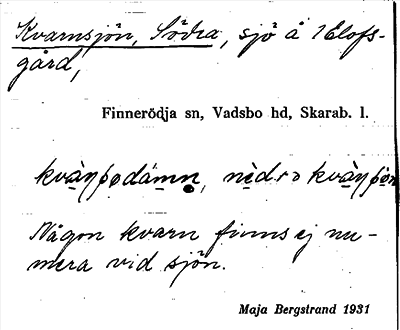 Kvarnsjön, Södra, sjö å 1 Elofs-
gård,
Finnerödja sn, Vadsbo hd, Skarab. l.
Någon kvarn finns ej nu-
mera vid sjön.
Maja Bergstrand 1931